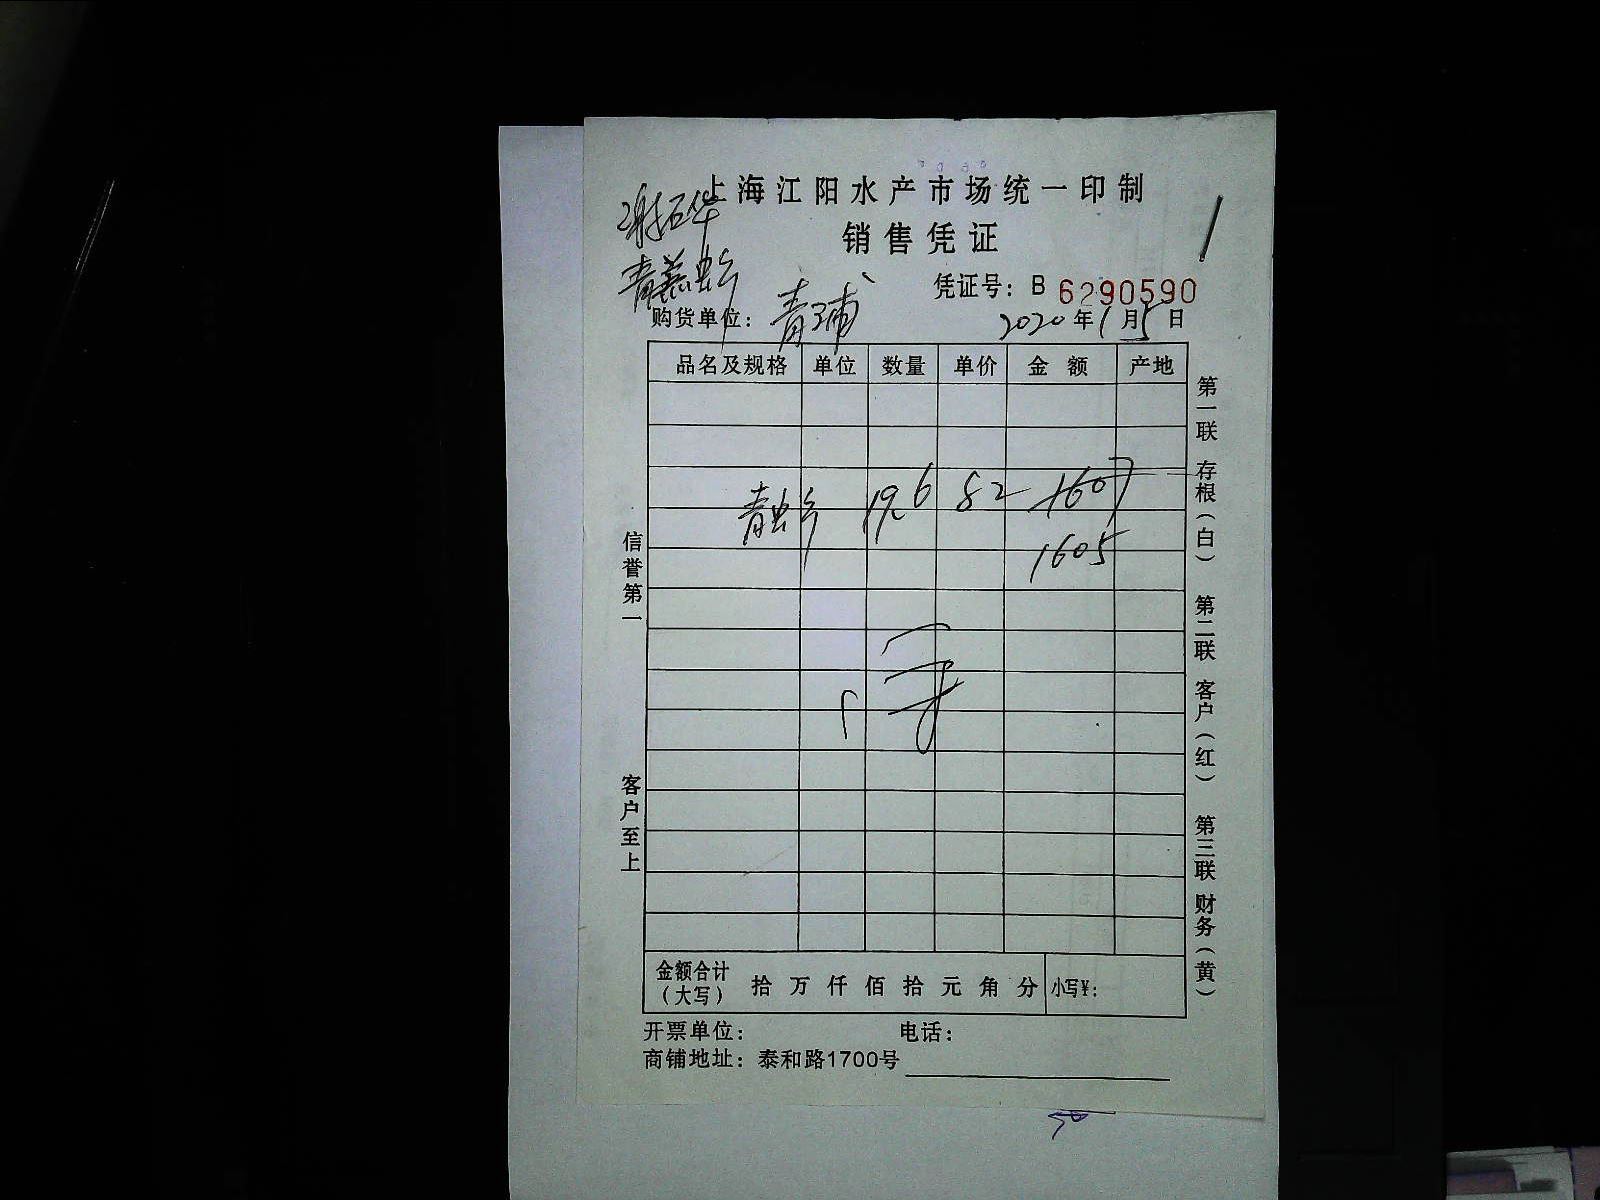 上海江阳水产市场统一印制
谢石华
销售凭证
青蟹
凭证号：B 6290590
购货单位：青浦
2020年1月5日
品名及规格 单位 数量 单价 金额 产地
青蟹 19.6 82 1607
1605
信誉第一
客户至上
第一联 存根（白） 第二联 客户（红） 第三联 财务（黄）
金额合计（大写） 拾 万 仟 佰 拾 元 角 分 小写¥：
开票单位： 电话：
商铺地址：泰和路1700号